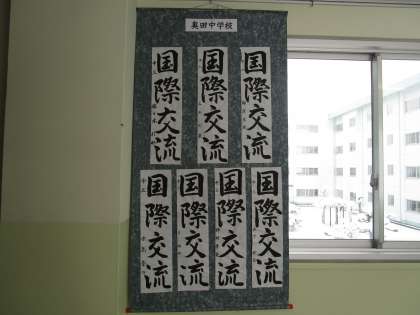 奥田中学校
国際交流
国際交流
国際交流
国際交流
国際交流
国際交流
国際交流